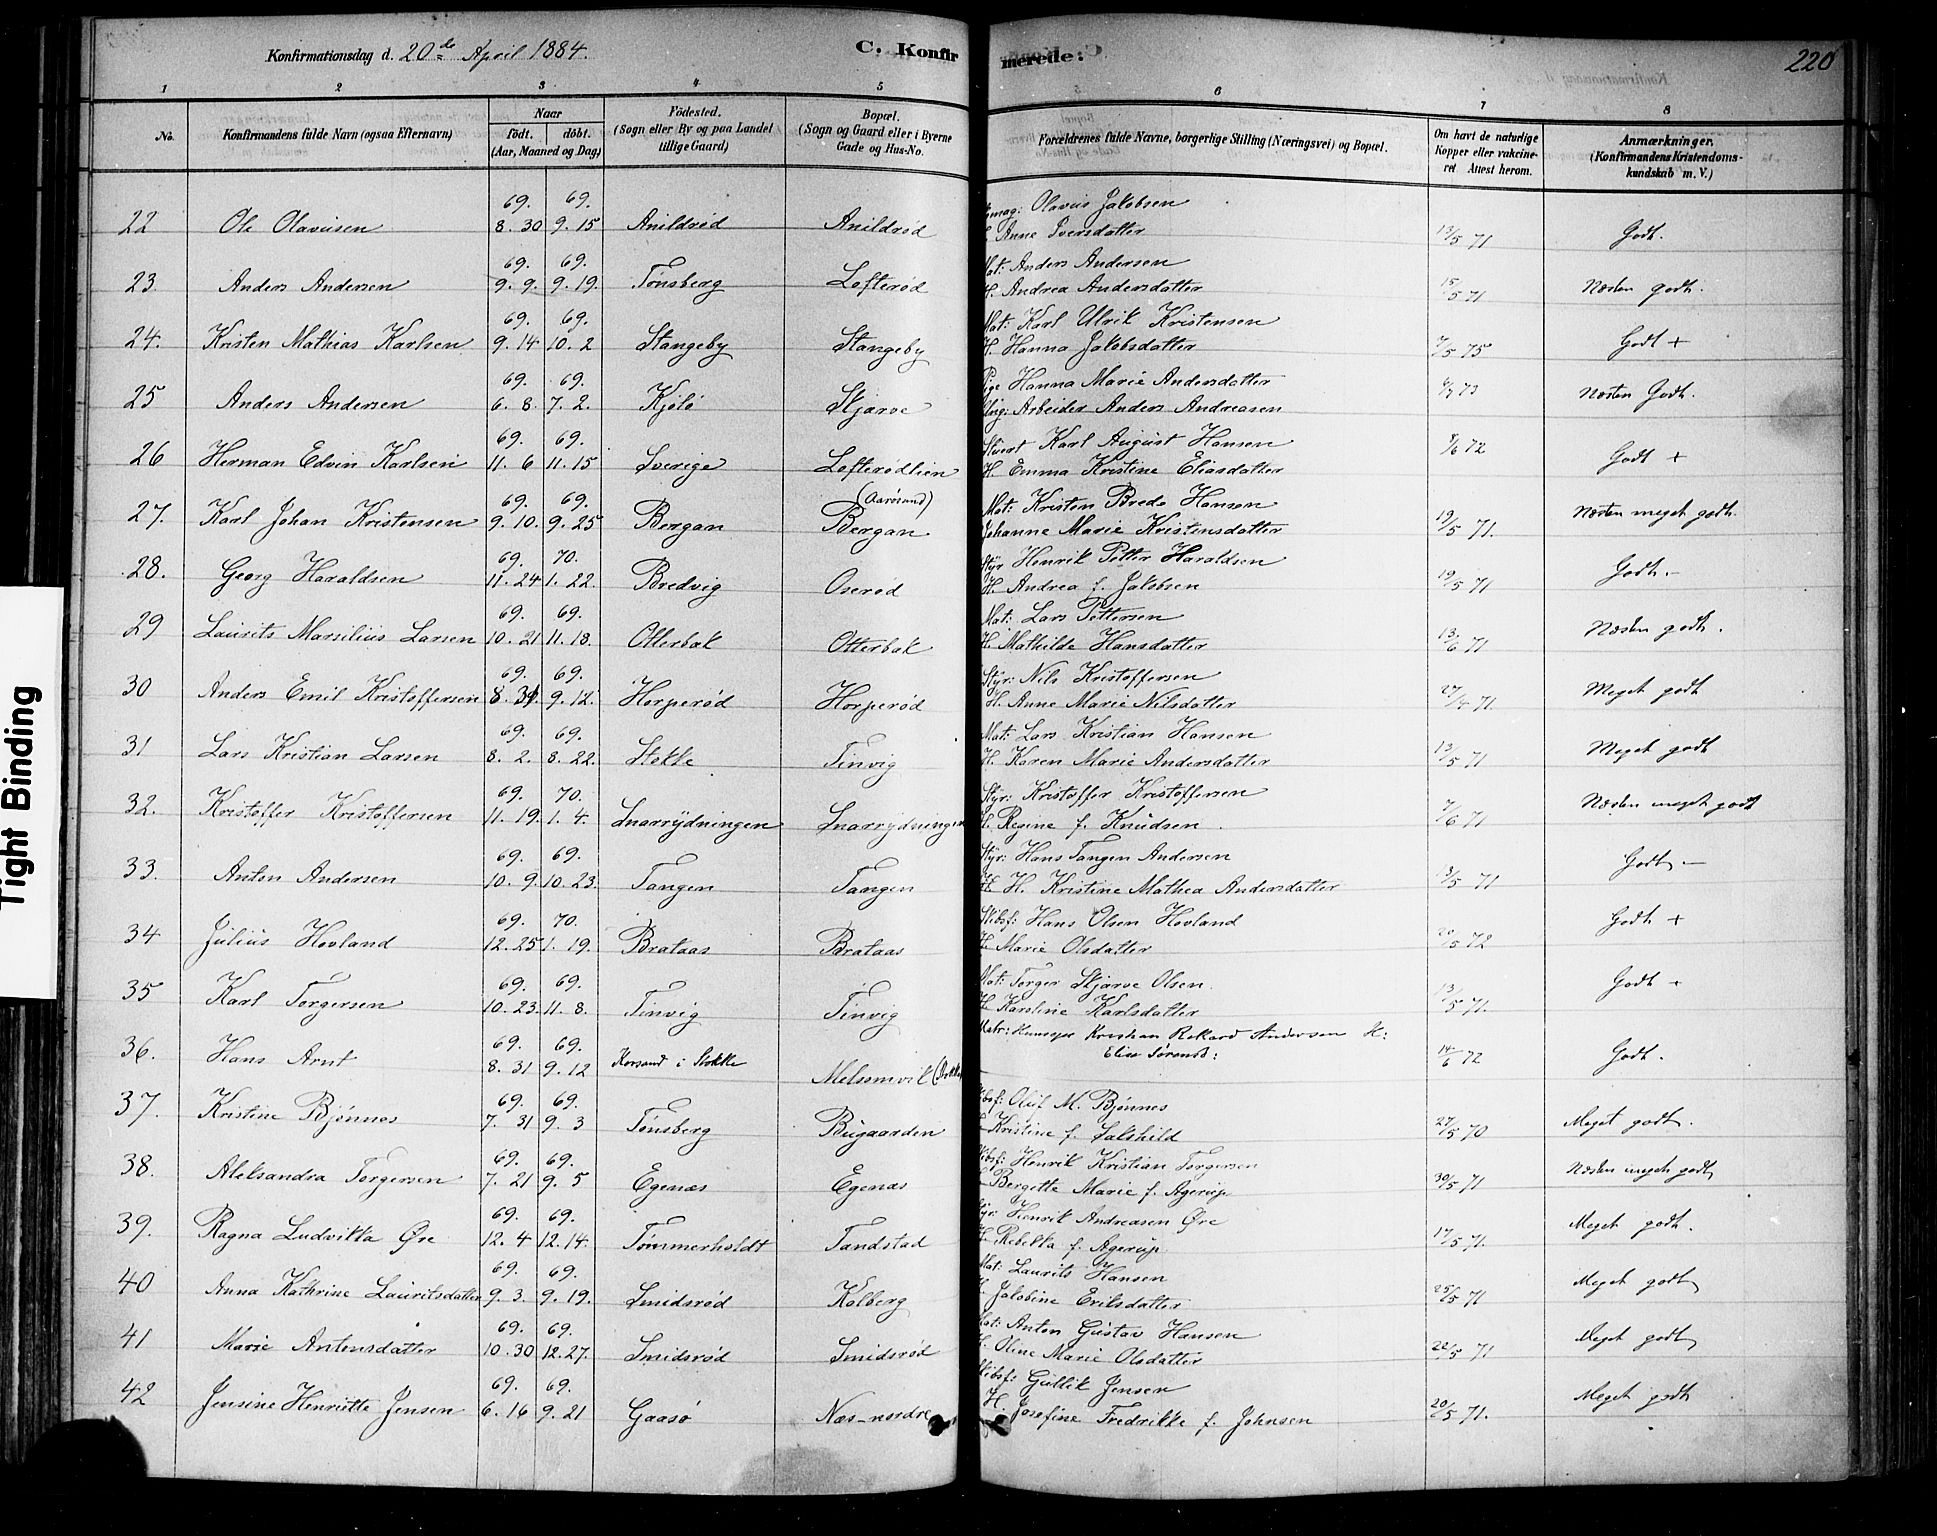 Konfirmationsdag d. 20de April 1884.
C. Konfirmerede:
220
1 2 3 4 5 6 7 8
No. Konfirmandens fulde Navn (ogsaa Efternavn) Naar født. døbt. (Aar, Maaned og Dag) Födested. (Sogn eller By og paa Landet tillige Gaard) Bopæl. (Sogn og Gaard eller i Byerne Gade og Hus-No. Forældrenes fulde Navne, borgerlige Stilling (Næringsvei) og Bopæl. Om havt de naturlige Kopper eller vakcineret Attest herom. Anmærkninger. (Konfirmandens Kristendomskundskab m. V.)
22 Ole Olavusen 69. 8. 30 69. 9. 15 Anildrød Anildrød Olavus Jakobsen
Anne Iversdatter 13/5 71 Godt.
23. Anders Andersen 69. 9. 9. 69. 9. 19. Tønsberg Lofterød Mat: Anders Andersen
H. Andrea Andersdatter 15/5 71 Næsten godt.
24. Kristen Mathias Karlsen 69. 9. 14 69. 10. 2 Stangeby Stangeby Mat: Karl Ulrik Kristensen
H. Hanna Jakobsdatter 7/5 75 Godt +
25 Anders Andersen 69. 6. 8. 69. 7. 2. Kjølø Skjærve Pige Hanna Marie Andersdatter
Ung: Arbeider Anders Andreasen 73 Næsten Godt.
26 Herman Edvin Karlsen 69. 11. 6 69. 11. 15 Sverige Lofterødlien (Aarøsund) Stuert Karl August Hansen
H. Emma Kristine Eliasdatter 8/6 72 Godt +
27. Karl Johan Kristensen 69. 9. 10. 69. 9. 25 Bergan Bergan Mat: Kristen Brede Hansen
Johanne Marie Kristensdatter 19/5 71. Næsten meget godt.
28. Georg Haraldsen 69. 11. 24 70. 1. 22. Bredvig Oserød Styr Henrik Petter Haraldsen
H. Andrea f. Jakobsen 19/5 71 Godt.
29 Laurits Marsilius Larsen 69. 10. 21 69. 11. 18. Otterbæk Otterbæk Mat: Lars Pettersen
H. Mathilde Hansdatter 13/6 71 Næsten godt.
30 Anders Emil Kristoffersen 69. 8. 31. 69. 9. 12. Horperød Horperød Styr: Nils Kristoffersen
H. Anne Marie Nilsdatter 27/4 71. Meget godt
31 Lars Kristian Larsen 69. 8. 2. 69. 8. 22. Stokke Tinvig Mat: Lars Kristian Hansen
H. Karen Marie Andersdatter 13/5 71 Meget godt
32. Kristoffer Kristoffersen 69. 11. 19. 70. 1. 4. Snarrydningen Snarrydningen Styr: Kristoffer Kristoffersen
H. Regine f. Knudsen. 7/6 71 Næsten meget godt
33. Anton Andersen 69. 10. 9. 69. 10. 23. Tangen Tangen Styr: Hans Tangen Andersen
H. H. Kristine Mathea Andersdatter 13/5 71 Godt —
34 Julius Hovland 69. 12. 25 70. 1. 19. Brataas Brataas Skibsf: Hans Olsen Hovland
H. Marie Olsdatter 20/5 72 Godt +
35 Karl Torgersen 69. 10. 23. 69. 11. 8. Tinvig Tinvig Mat: Torger Skjærve Olsen.
H. Karoline Karlsdatter 13/5 71. Godt +
36. Hans Arnt 69. 8. 31 69. 9. 12 Korsand i Stokke Melsomvik (Stokke) Kristian Rikard Andersen H:
Elise Sørensd: 14/6 72 Godt.
37. Kristine Bjønnes 69. 7. 31 69. 9. 3 Tønsberg Bugaarden Skibsf: Oluf M. Bjønnes
Kristine f. Falshild 27/5 70 Meget godt.
38. Aleksandra Torgersen 69. 7. 21 69. 9. 5 Egenæs Egenæs Skibsf: Henrik Kristian Torgersen
Bergitte Marie f. Agerup 30/5 71 Næsten meget godt
39. Ragna Ludvikka Øre 69. 12. 4 69. 12. 14. Tømmerholdt Tandstad Styr: Henrik Andreasen Øre
H. Rebekka f. Agerup 17/5 71. Meget godt.
40 Anna Kathrine Lauritsdatter 69. 9. 3. 69. 9. 19. Smidsrød Kolberg Mat: Laurits Hansen
H. Jakobine Eriksdatter 25/5 71 Meget godt
41 Marie Antonsdatter 69. 10. 30 69. 12. 27. Smidsrød Smidsrød Mat: Anton Gustav Hansen
H. Oline Marie Olsdatter 22/5 71 Meget godt
42 Jensine Henriette Jensen 69. 6. 16 69. 9. 21 Gaasø Næs-nordre Skibsf: Gullik Jensen
H. Josefine Fredrikke f. Johnsen 20/5 71. Meget godt
Tight Binding